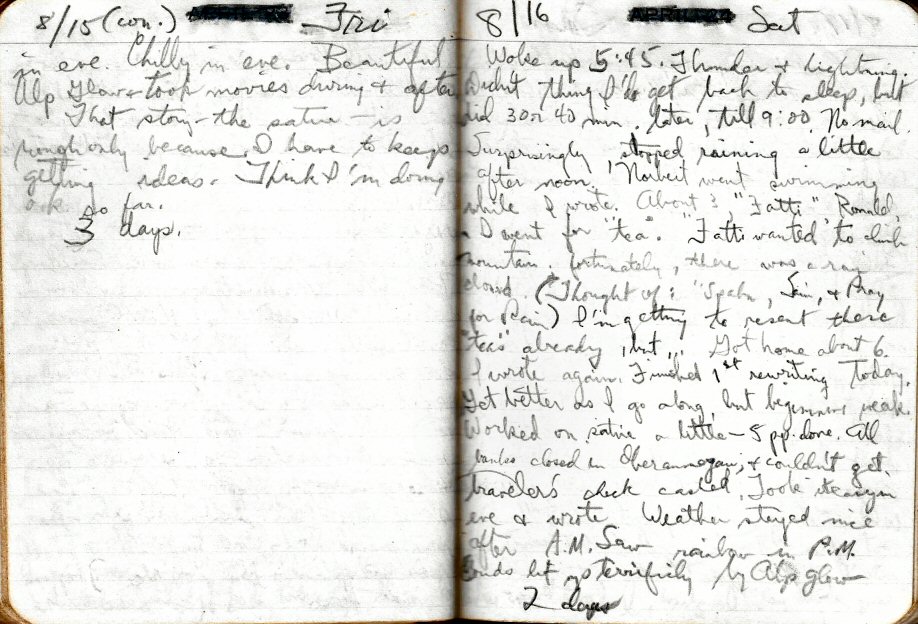 8/15 (con.) Fri
in eve. Chilly in eve. Beautiful
Alp Glow & took movies during & after
That story - the satire - is
rough only because I have to keep
getting ideas. Think I'm doing
o.k. so far.
3 days.
8/16 Sat
Woke up 5:45. Thunder & Lightning.
Didn't thing I'd get back to sleep, but
did 30 or 40 min. later, till 9:00. No mail.
Surprisingly, stopped raining a little
after noon. Norbert went swimming
while I wrote. About 3, "Fatti" Ronald,
I went for "tea". "Fatti wanted to climb
mountain. Fortunately, there was a rain
cloud. (Thought of: "Spahn, Sain, & Pray
for Rain) I'm getting to resent these
"teas" already, but ... Got home about 6.
I wrote again. Finished 1st rewriting Today.
Got better as I go along, but beginning weak.
Worked on satire a little - 8 pp. done. All
banks closed in Oberammergau, & couldn't get
Traveler's check cashed. Took it easy in
eve & wrote. Weather stayed nice
after A.M. Saw rainbow in P.M.
Clouds lit up terrificly by Alp glow
2 days